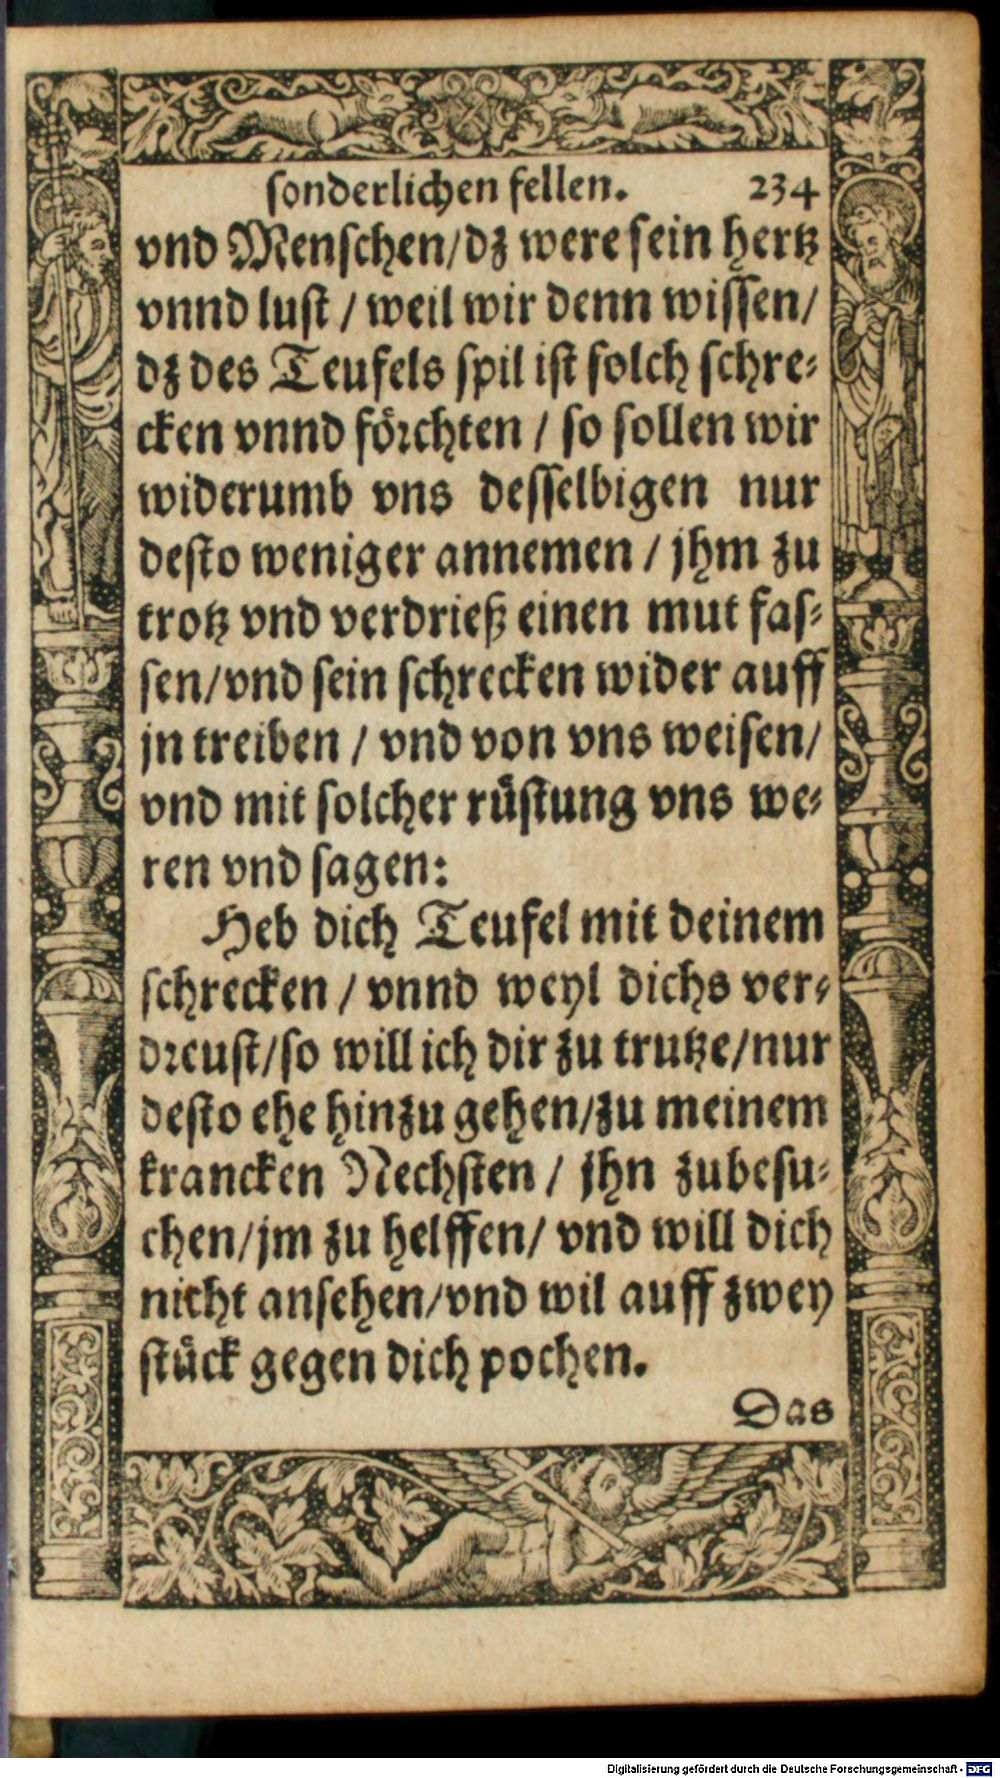 sonderlichen fellen. 234
vnd Menschen/dz were sein hertz
vnnd lust / weil wir denn wissen/
dz des Teufels spil ist solch schre-
cken vnnd förchten / so sollen wir
widerumb vns desselbigen nur
desto weniger annemen / jhm zu
trotz vnd verdrieß einen mut fas-
sen/vnd sein schrecken wider auff
jn treiben / vnd von vns weisen/
vnd mit solcher rüstung vns we-
ren vnd sagen:
Heb dich Teufel mit deinem
schrecken / vnnd weyl dichs ver-
dreust/so will ich dir zu trutze/nur
desto ehe hinzu gehen/zu meinem
krancken Nechsten / jhn zubesu-
chen/jm zu helffen/ vnd will dich
nicht ansehen/vnd wil auff zwey
stück gegen dich pochen.
Das
Digitalisierung gefördert durch die Deutsche Forschungsgemeinschaft - DFG